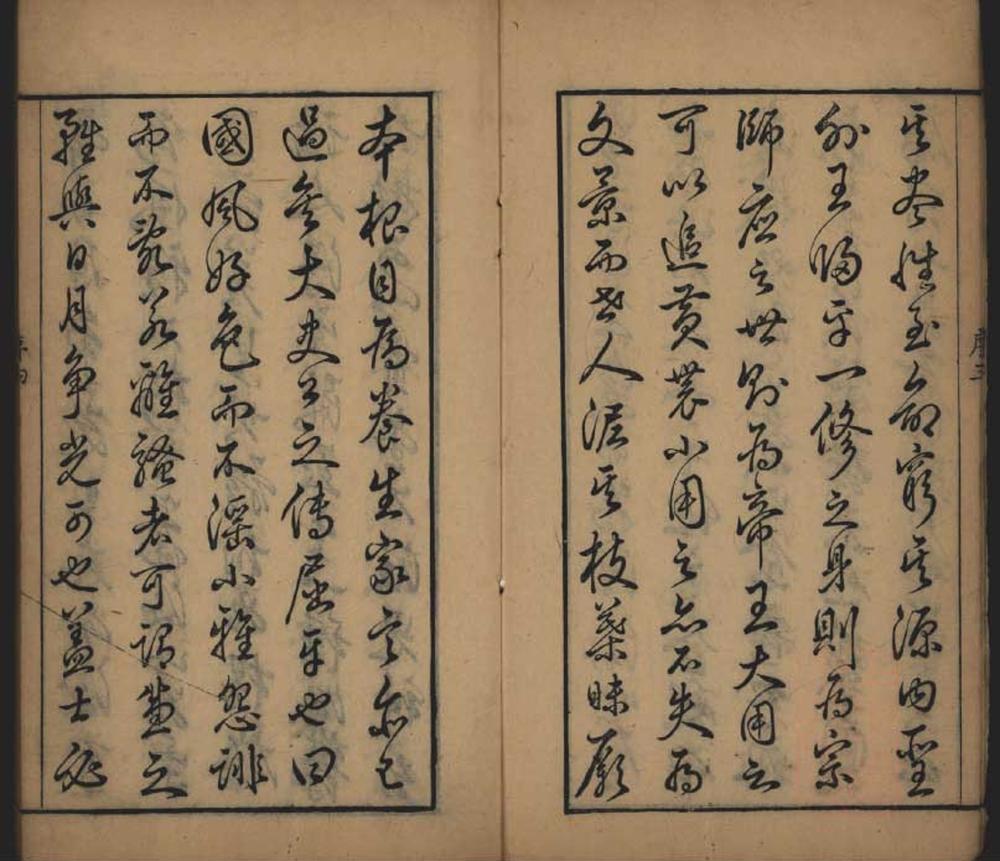 其盡性至命窮其源內聖
外王歸乎一修之身則為宗
師應之世則為帝王大用之
可以追黃農小用之亦不失為
文景而世人泥其枝葉昧厥
本根目為養生家言亦已
過矣大史公之傳屈平也曰
國風好色而不淫小雅怨誹
而不亂若離騷者可謂兼之
雖與日月爭光可也蓋士